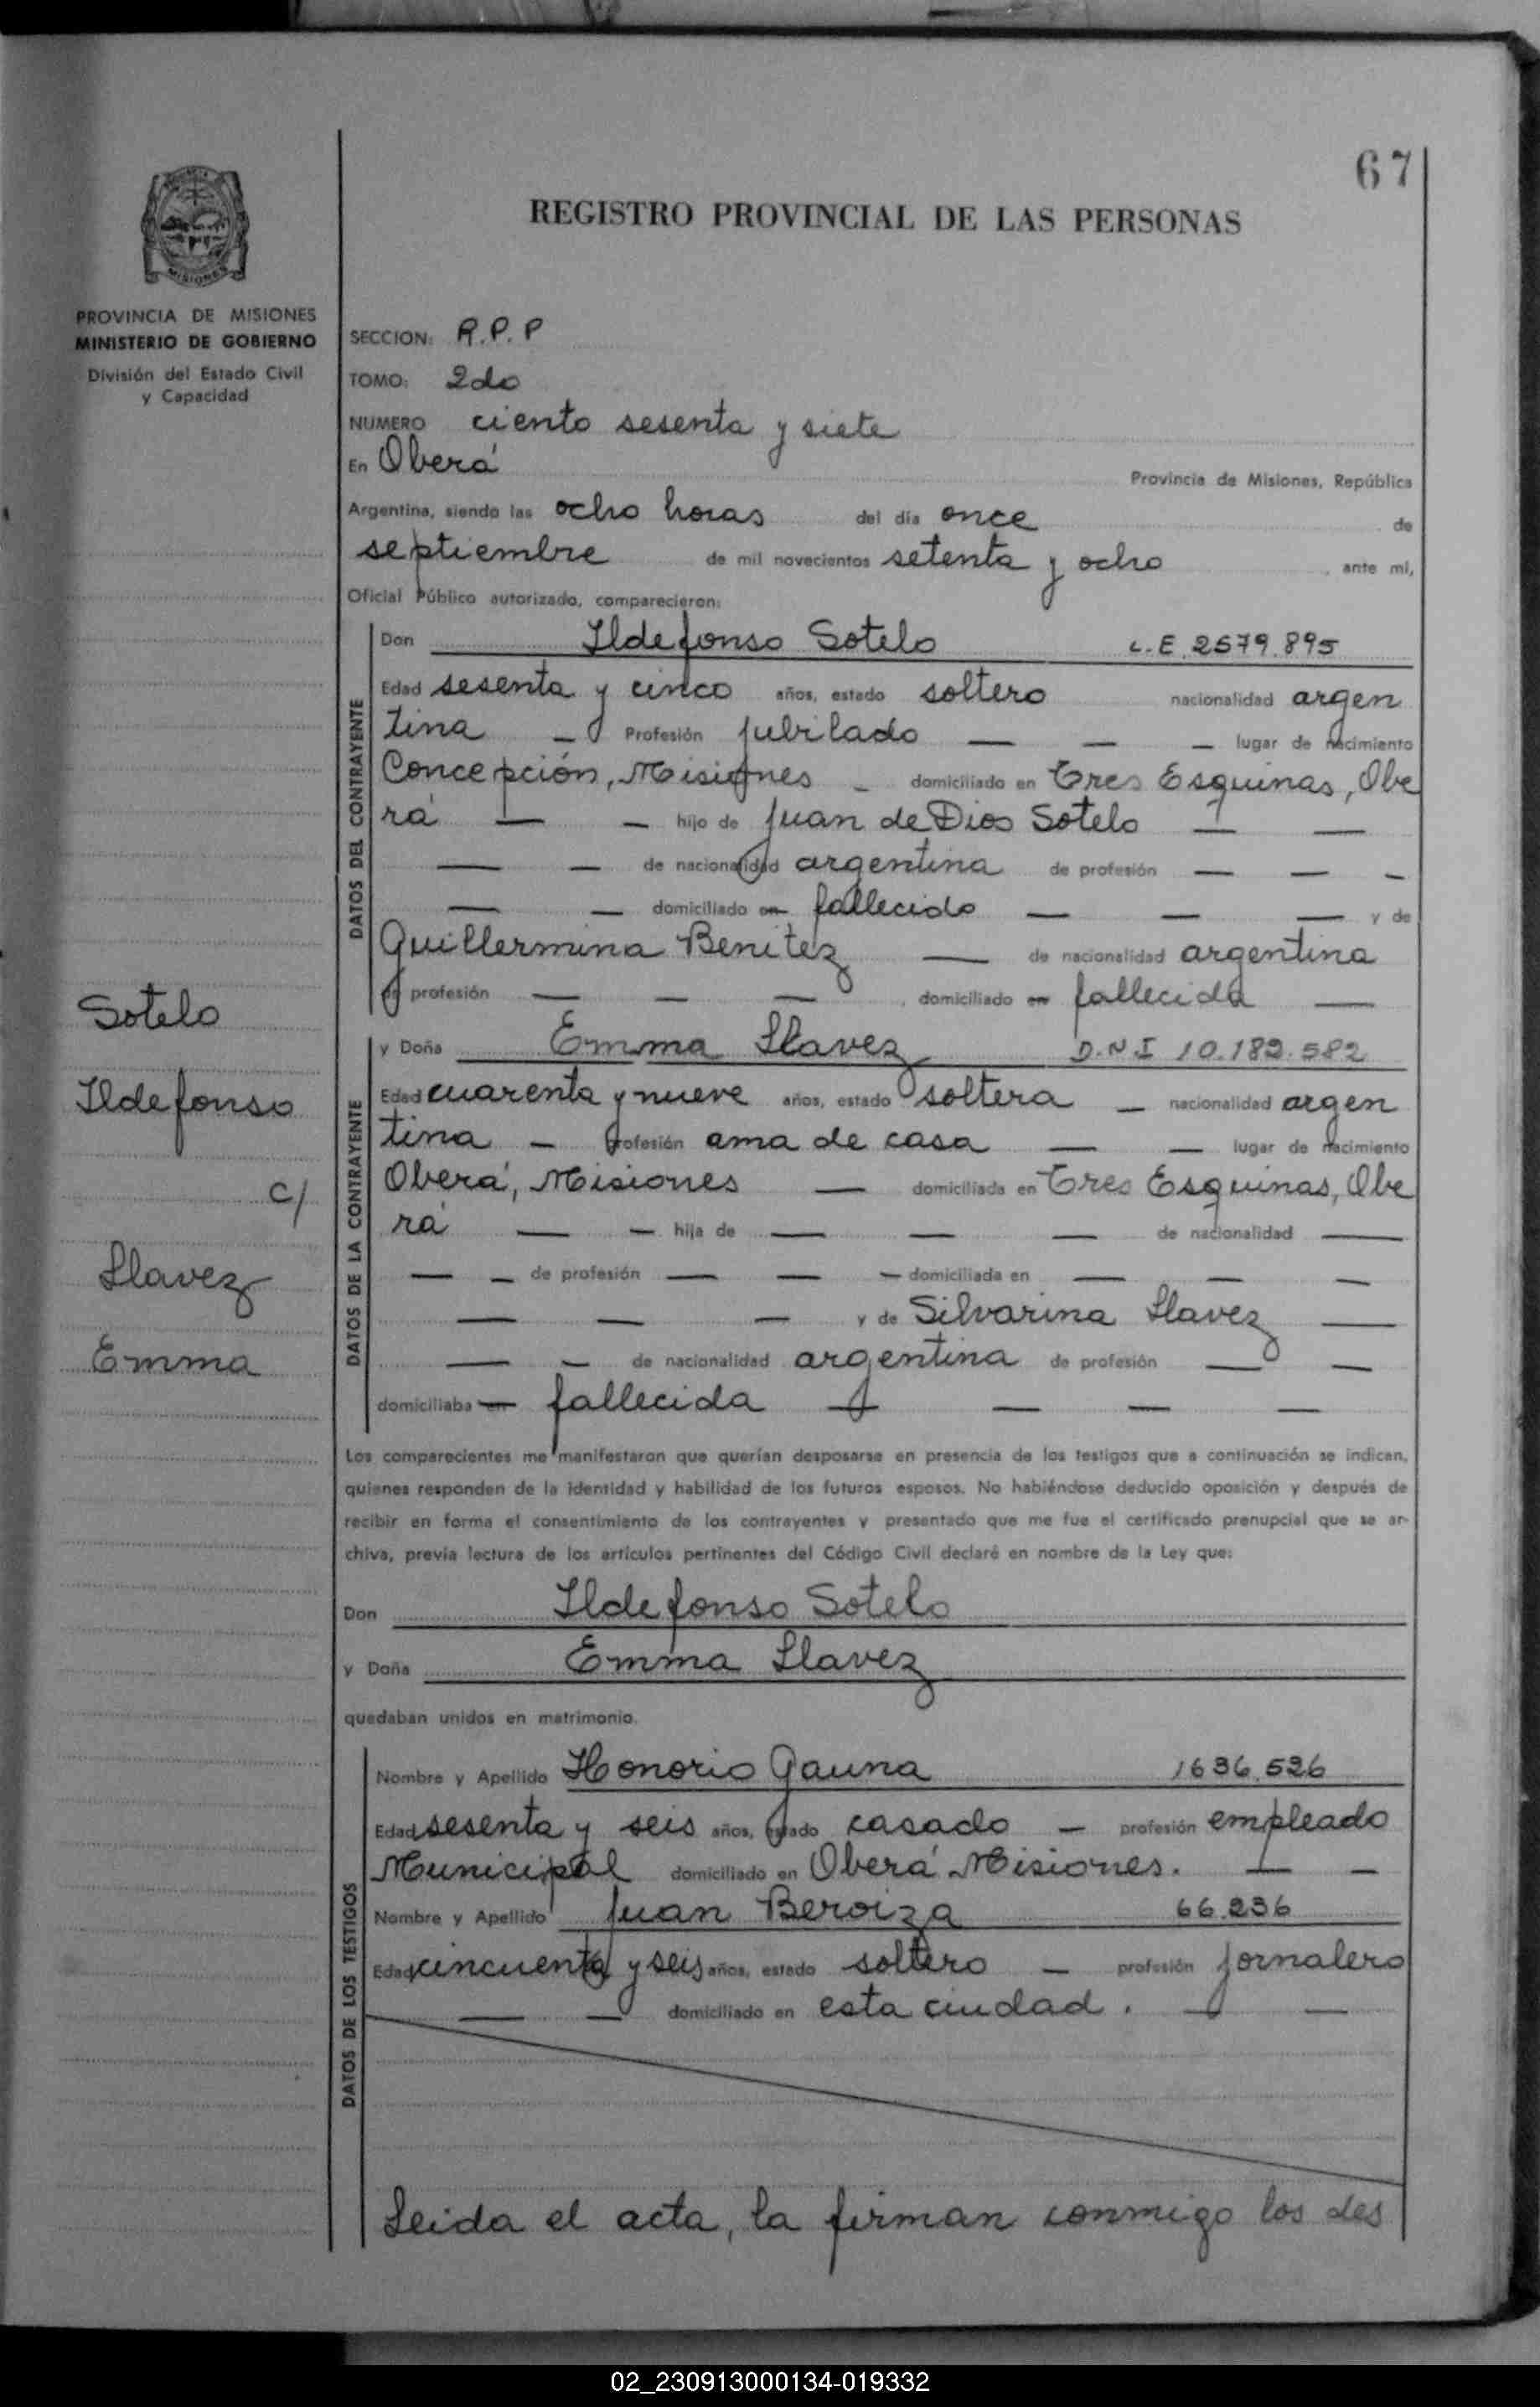 67
REGISTRO PROVINCIAL DE LAS PERSONAS
MISIONES
PROVINCIA DE MISIONES
MINISTERIO DE GOBIERNO
División del Estado Civil
y Capacidad
SECCION: R.P.P
TOMO: 2do
NUMERO ciento sesenta y siete
En Oberá Provincia de Misiones, República
Argentina, siendo las ocho horas del día once de
septiembre de mil novecientos setenta y ocho, ante mí,
Oficial Público autorizado, comparecieron:
DATOS DEL CONTRAYENTE
Don Ildefonso Sotelo L.E 2579.895
Edad sesenta y cinco años, estado soltero nacionalidad argen
tina — Profesión jubilado — — — lugar de nacimiento
Concepción, Misiones — domiciliado en Tres Esquinas, Obe
rá — — hijo de Juan de Dios Sotelo — —
— — de nacionalidad argentina de profesión — — —
— — domiciliado en fallecido — — — y de
Guillermina Benitez — de nacionalidad argentina
de profesión — — —, domiciliado en fallecida —
Sotelo
Ildefonso
c/
Llavez
Emma
DATOS DE LA CONTRAYENTE
y Doña Emma Llavez D.N.I 10.182.582
Edad cuarenta y nueve años, estado soltera — nacionalidad argen
tina — Profesión ama de casa — — lugar de nacimiento
Oberá, Misiones — domiciliada en Tres Esquinas, Obe
rá — — hija de — — — de nacionalidad —
— — de profesión — — — domiciliada en — — —
— — — y de Silvarina Llavez —
— — de nacionalidad argentina de profesión — —
domiciliaba en fallecida — — — —
Los comparecientes me manifestaron que querían desposarse en presencia de los testigos que a continuación se indican,
quienes responden de la identidad y habilidad de los futuros esposos. No habiéndose deducido oposición y después de
recibir en forma el consentimiento de los contrayentes y presentado que me fue el certificado prenupcial que se ar-
chiva, previa lectura de los artículos pertinentes del Código Civil declaré en nombre de la Ley que:
Don Ildefonso Sotelo
y Doña Emma Llavez
quedaban unidos en matrimonio.
DATOS DE LOS TESTIGOS
Nombre y Apellido Honorio Gauna 1636.526
Edad sesenta y seis años, estado casado — profesión empleado
Municipal domiciliado en Oberá Misiones. — —
Nombre y Apellido Juan Beroiza 66.236
Edad cincuenta y seis años, estado soltero — profesión jornalero
— — domiciliado en esta ciudad. — —
Leida el acta, la firman conmigo los des
02_230913000134-019332